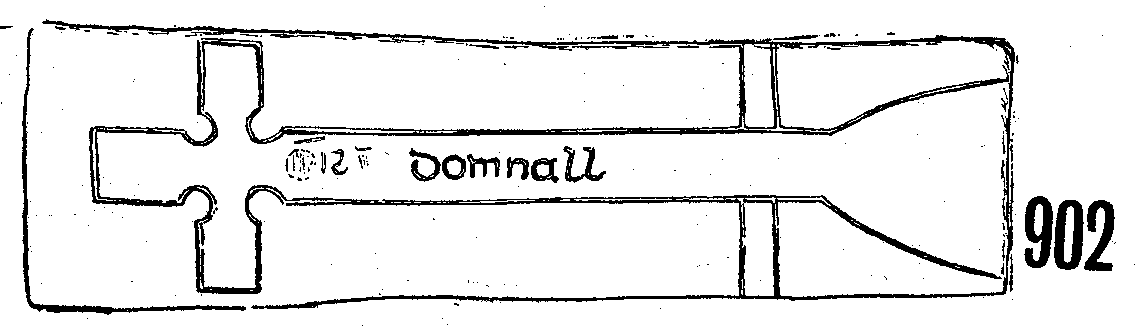 domnall
902